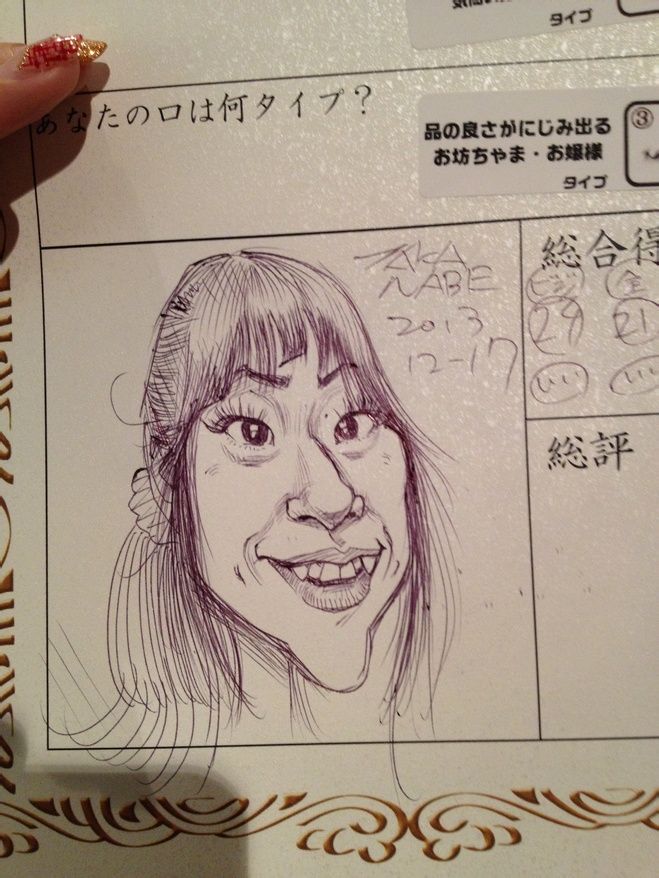 タイプ
あなたの口は何タイプ？
品の良さがにじみ出る
お坊ちゃま・お嬢様
タイプ
③
TAKA
NABE
2013
12-17
総合得
29 21
いい いい
総評